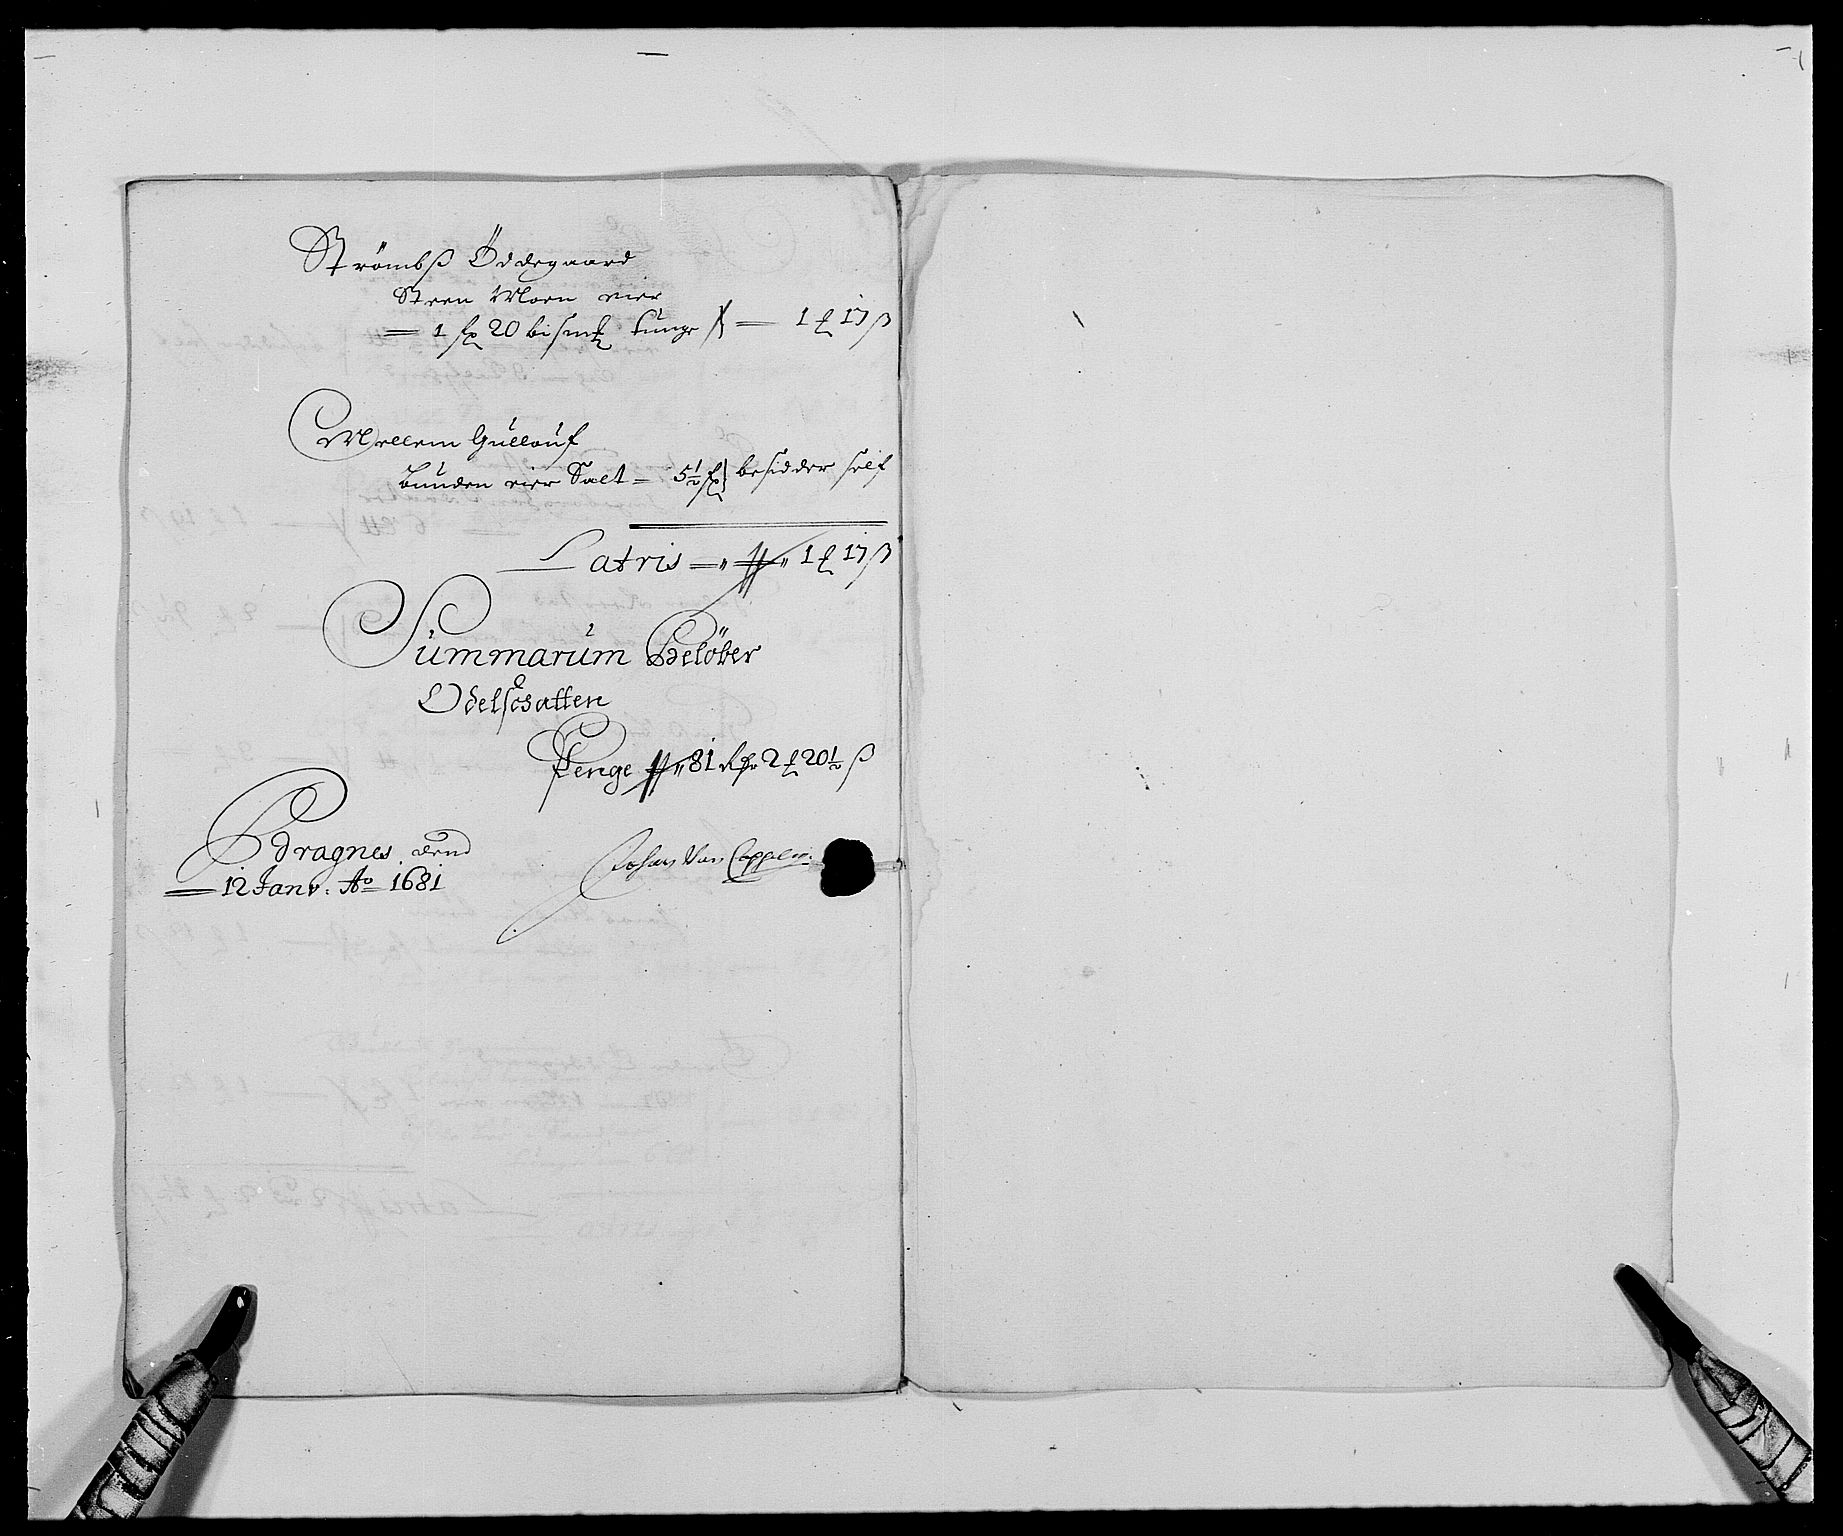 Strömbß Öddegaard
Steen Moen eier
= 1 ſp 20 biſmk tunge — 1 ſ 17 ß
Mellem Gullauf
bunden eier Salt = 5½ besidder self
Latris — 1 ſ 17 ß
Summarum Belöber
Odelschatten
Penge 81 Rdr 2 ſ 20½ ß
Bdragnes dend
12 Janv: Ao 1681
Johan Van Cappelen